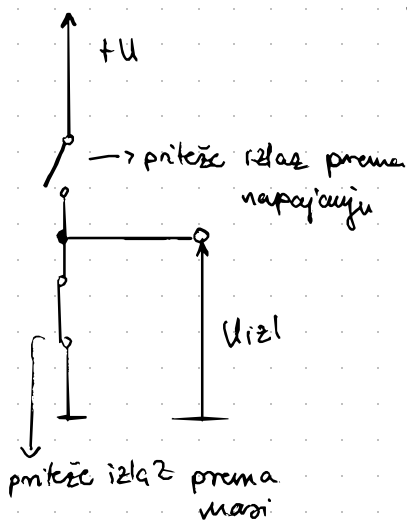 +U
→ priteže izlaz prema
napajanju
Uizl
priteže izlaz prema
masi